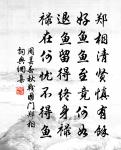 郑相清贤慎有馀
好鱼鱼至竟何如
退鱼留得终身禄
禄在何忧不得鱼
周昙春秋战国门郑相
词典网集